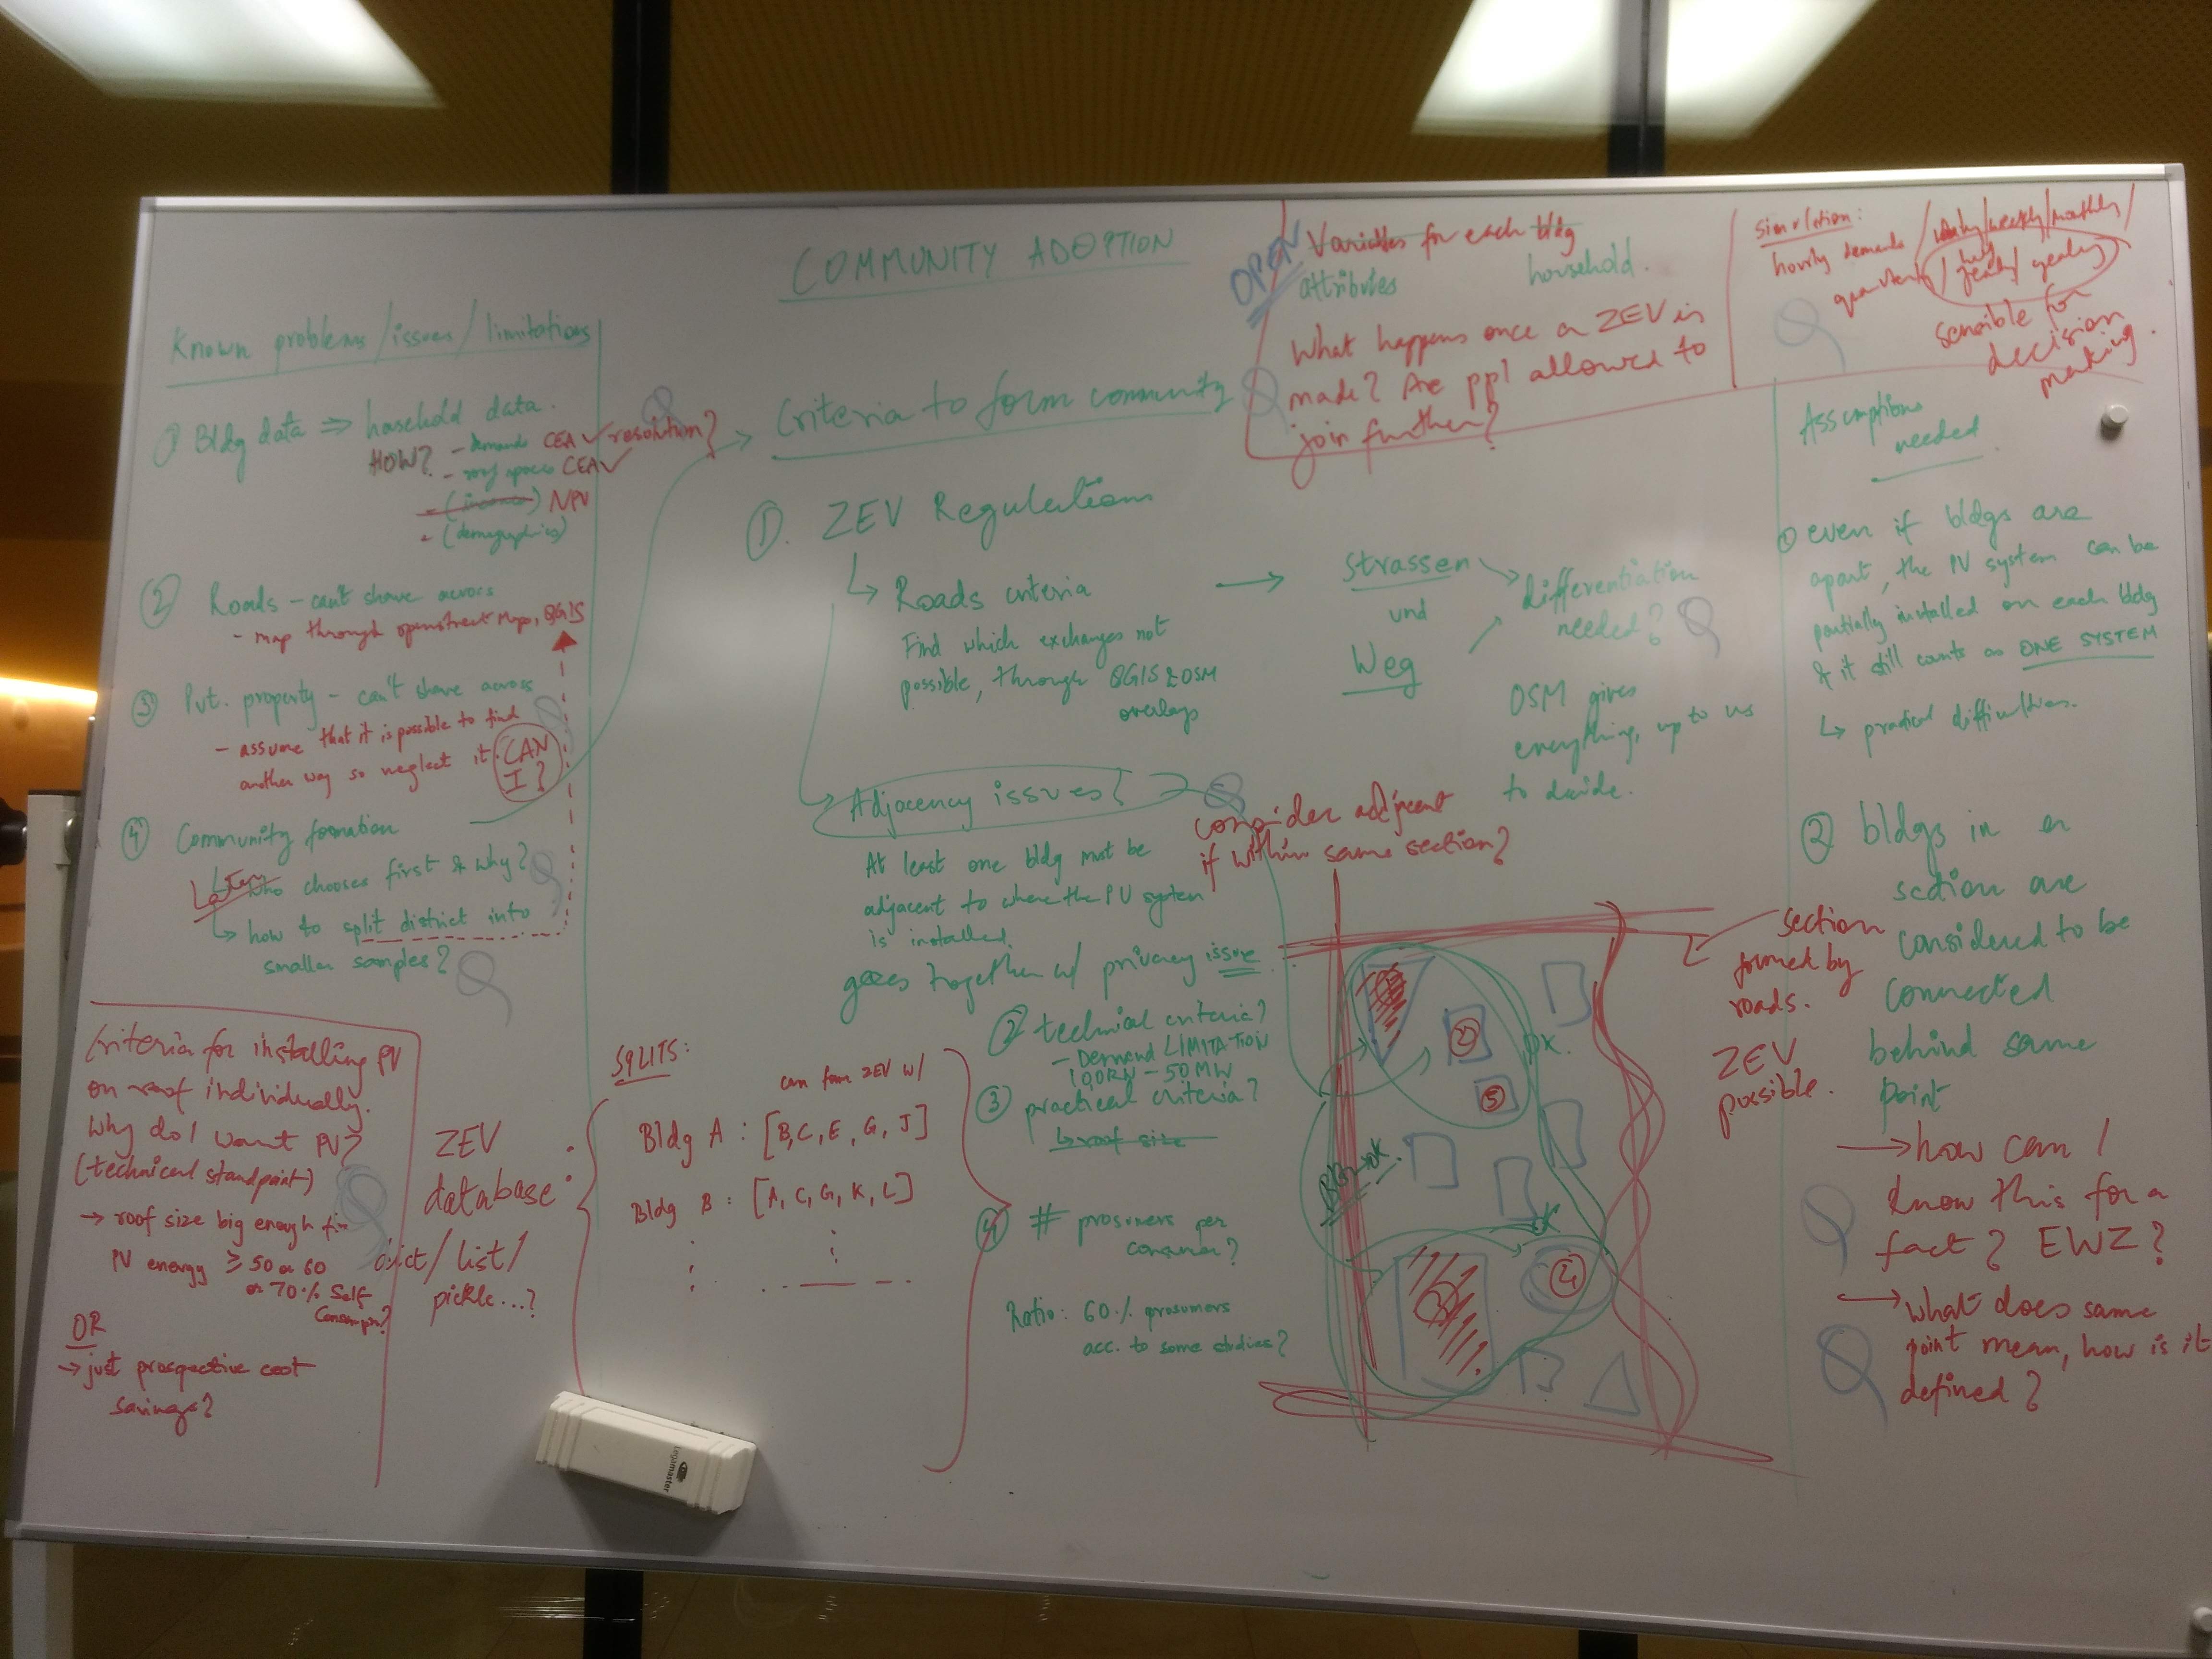 COMMUNITY ADOPTION
Known problems/issues/limitations
① Bldg data ⇒ household data.
HOW? - demands CEA ✓ resolution?
- roof spaces CEA ✓
- (income) NPV
- (demographics)
② Roads - can't share across
- map through openstreet Maps, QGIS
③ Pvt. property - can't share across
- assume that it is possible to find
another way so neglect it. CAN
I?
④ Community formation
↳ who chooses first & why?
↳ how to split district into
smaller samples?
Criteria for installing PV
on roof individually.
Why do I want PV?
(technical standpoint)
→ roof size big enough for
PV energy ≥ 50 or 60
or 70% Self
Consmp?
OR
→ just prospective cost
savings?
ZEV
database:
dict/list/
pickle...?
SPLITS:
can form ZEV w/
Bldg A : [B, C, E, G, J]
Bldg B : [A, C, G, K, L]
Criteria to form community
①. ZEV Regulations
↳ Roads criteria
Find which exchanges not
possible, through QGIS & OSM
overlays
→ Strassen
und
Weg
differentiation
needed?
OSM gives
everything, up to us
to decide.
Adjacency issues?
consider adjacent
if within same section?
At least one bldg must be
adjacent to where the PV system
is installed.
goes together w/ privacy issue
② technical criteria?
- Demand LIMITATION
100kW - 50MW
③ practical criteria?
↳ roof size
④ # prosumers per
consumer?
Ratio: 60% prosumers
acc. to some studies?
OPEN
Variables for each bldg
attributes household.
What happens once a ZEV is
made? Are ppl allowed to
join further?
Simulation:
hourly demands /daily/weekly/monthly/
quarterly/half yearly/yearly
sensible for
decision
making.
Assumptions
needed
① even if bldgs are
apart, the PV system can be
partially installed on each bldg
& it still counts as ONE SYSTEM
↳ practical difficulties.
② bldgs in a
section are
considered to be
connected
behind same
point
→ how can I
know this for a
fact? EWZ?
→ what does same
point mean, how is it
defined?
section
formed by
roads.
ZEV
possible.
①
②
⑤
OK.
OK
③
④
legamaster